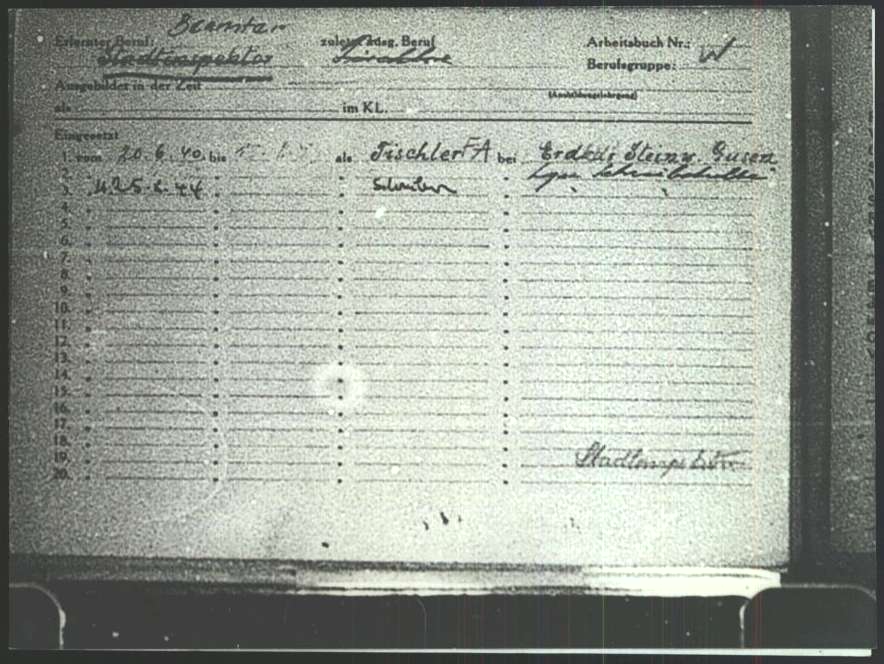 Beamter
Erlernter Beruf: Stadtinspektor zuletzt ausg. Beruf Arbeitsbuch Nr.: W
Berufsgruppe:
Ausgebildet in der Zeit (Ausbildungslehrgang)
als im KL.
Eingesetzt
1. vom 20.6.40. bis als Tischler FA bei Steinw. Gusen
2. " " " "
3. " 25.6.44 " " Schreiber "
4. " " " "
5. " " " "
6. " " " "
7. " " " "
8. " " " "
9. " " " "
10. " " " "
11. " " " "
12. " " " "
13. " " " "
14. " " " "
15. " " " "
16. " " " "
17. " " " "
18. " " " "
19. " " " " Stadtinspektor
20. " " " "